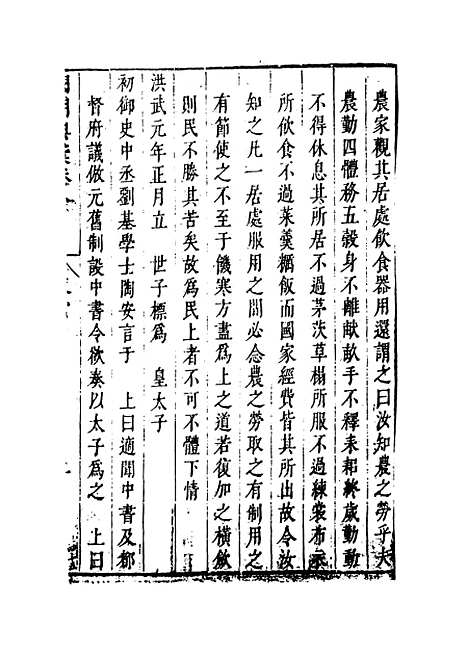 農家觀其居處飲食器用還謂之曰汝知農之勞乎夫
農勤四體務五穀身不離畎畝手不釋耒耜終歲勤動
不得休息其所居不過茅茨草榻所服不過練裳布衣
所飲食不過菜羹糲飯而國家經費皆其所出故令汝
知之凡一居處服用之間必念農之勞取之有制用之
有節使之不至于饑寒方盡為上之道若復加之橫斂
則民不勝其苦矣故為民上者不可不體下情
洪武元年正月立 世子標為 皇太子
初御史中丞劉基學士陶安言于 上曰適聞中書及都
督府議倣元舊制設中書令欲奏以太子為之 上曰